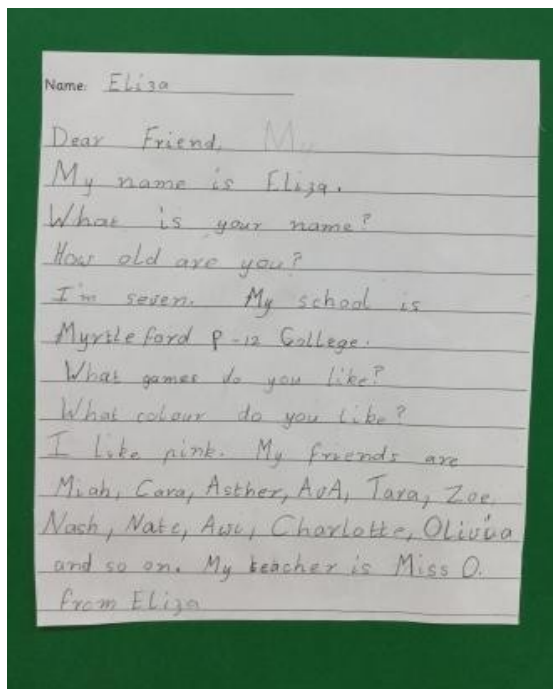 Name: Eliza
Dear Friend, My
My name is Eliza.
What is your name?
How old are you?
I'm seven. My school is
Myrtleford P-12 College.
What games do you like?
What colour do you like?
I like pink. My friends are
Miah, Cara, Asther, AvA, Tara, Zoe,
Nash, Nate, Avi, Charlotte, Olivia
and so on. My teacher is Miss O.
from Eliza